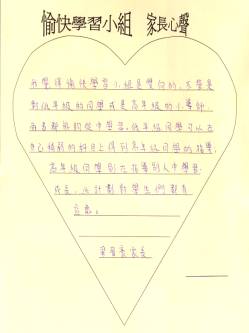 愉快學習小組 家長心聲
我覺得愉快學習小組是雙向的，不管是
對低年級的同學或是高年級的小導師，
兩者都能夠從中學習。低年級同學可以在
自己稍弱的科目上得到高年級同學的指導，
高年級同學則在指導別人中學習、
成長，此計劃對學生們很有
意思。
家長